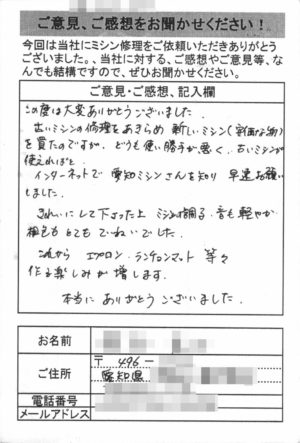 ご意見、ご感想をお聞かせください！
今回は当社にミシン修理をご依頼いただきありがとう
ございました。、当社に対する、ご感想やご意見等、な
んでも結構ですので、ぜひお聞かせください。
ご意見・ご感想、記入欄
この度は大変ありがとうございました。
古いミシンの修理をあきらめ 新しいミシン(安価な物)
を買たのですが、どうも使い勝手が悪く、古いミシンが
使えればと
インターネットで 愛知ミシンさんを知り 早速お願い
しました。
きれいにして下さった上 ミシンの調子、音も軽やか
梱包も とてもていねいでした。
これから エプロン・ランチョンマット 等々
作る楽しみが増します。
本当に ありがとうございました。
お名前
ご住所
〒 496 -
愛知県
電話番号
メールアドレス